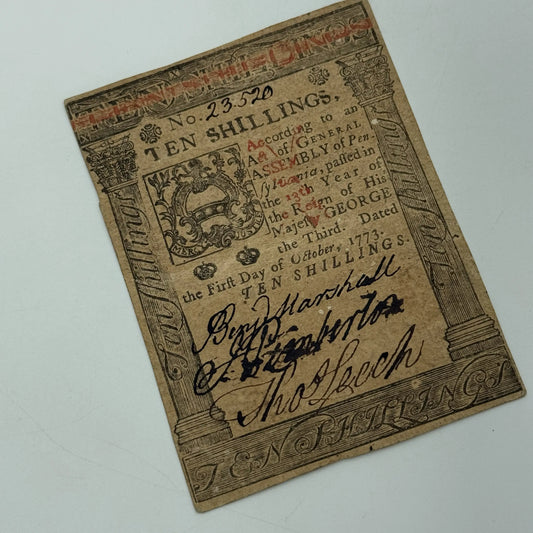 TEN SHILLINGS
No. 23.520
TEN SHILLINGS,
According to an
Act of GENERAL
ASSEMBLY of Pen-
sylvania, passed in
the 13th Year of
the Reign of His
Majesty GEORGE
the Third. Dated
the First Day of October, 1773.
TEN SHILLINGS.
MERCY JUSTICE
Ten Shillings
Ten Shillings
Benj. Marshall
J. Pemberton
Thos Leech
TEN SHILLINGS